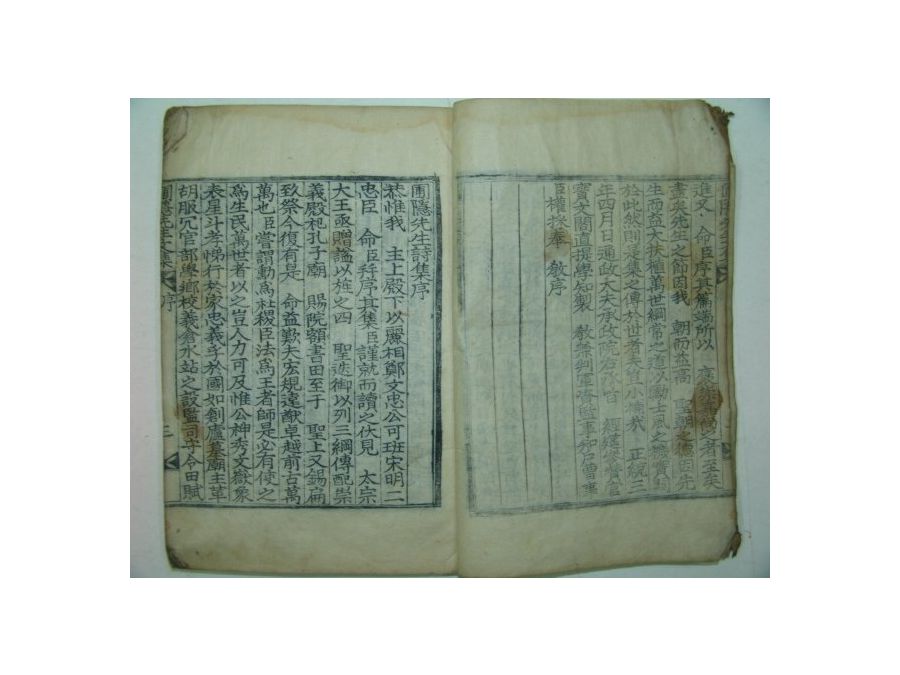 進又 命臣序其篇端所以
盡矣先生之節因我 朝而益高 聖朝之德
生而益大扶植萬世綱常之道以勵士風之
於此然則是集之傳於世者夫豈小補哉 正統三
年四月日通政大夫承政院右承旨 經筵
寶文閣直提學知製 教兼判軍資監事知戶曹事
臣權採奉 教序
圃隱先生詩集序
恭惟我 主上殿下以麗相鄭文忠公可班宋明二
忠臣 命臣幷序其集臣謹就而讀之伏見 太宗
大王亟贈諡以旌之四 聖迭御以列三綱傳配崇
義殿祀孔子廟 賜院額書田至于 聖上又錫扁
致祭今復有是 命益歎夫宏規遠猷卓越前古萬
萬也臣嘗謂勳爲社稷臣法爲王者師是必有使之
爲生民萬世者以之豈人力可及惟公神秀文嶽象
表星斗孝悌行於家忠義孚於國如創廬墓廟主革
胡服冗官部學鄕校義倉水站之設監司守令田賦
圃隱先生集 序 三